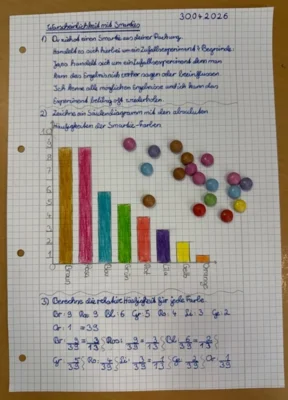 30.04.2026
Wahrscheinlichkeit mit Smarties
1) Du nimmst einen Smartie aus deiner Packung.
Handelt es sich hierbei um ein Zufallsexperiment? Begründe.
Ja es handelt sich um ein Zufallsexperiment denn man
kann das Ergebnis nicht vorher sagen oder beeinflussen.
Ich kenne alle möglichen Ergebnisse und ich kann das
Experiment beliebig oft wiederholen.
Zeichne ein Säulendiagramm mit den absoluten
Häufigkeiten der Smartie-Farben.
10
9
8
7
6
5
4
3
2
1
Braun
Rosa
Blau
Grün
Rot
Lila
Gelb
Orange
3) Berechne die relative Häufigkeit für jede Farbe.
Br: 9 Ros 9 Bl: 6 Gr 5 Ro: 4 Li: 3 Ge: 2
Or: 1 = 39
Br: 9/39 = 3/13 Ros: 9/39 = 3/13 Bl: 6/39 = 2/13
Gr 5/39 Ro: 4/39 Li: 3/39 = 1/13 Ge: 2/39 Or 1/39